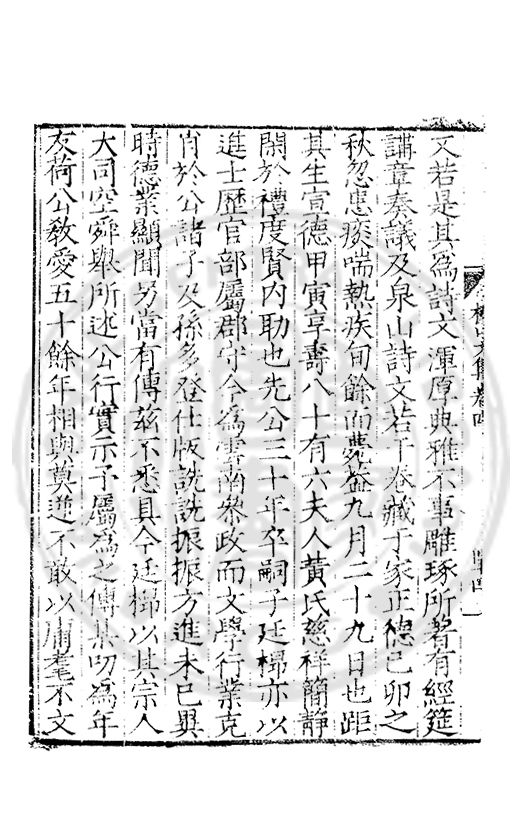 文若是其爲詩文渾厚典雅不事雕琢所著有經筵
講章奏議及泉山詩文若干卷藏于家正德己卯之
秋忽患痰喘熱疾旬餘而薨葢九月二十九日也距
其生宣德甲寅享壽八十有六夫人黃氏慈祥簡靜
閑於禮度賢內助也先公三十年卒嗣子廷梯亦以
進士歴官部屬郡守今爲雲南叅政而文學行業克
肖於公諸子及孫多登仕版詵詵振振方進未已異
時德業顯聞另當有傳兹不悉具今廷梯以其宗人
大司空舜舉所述公行實示予屬爲之傳某叨爲年
友荷公敎愛五十餘年相與莫逆不敢以庸耄不文
文集卷四